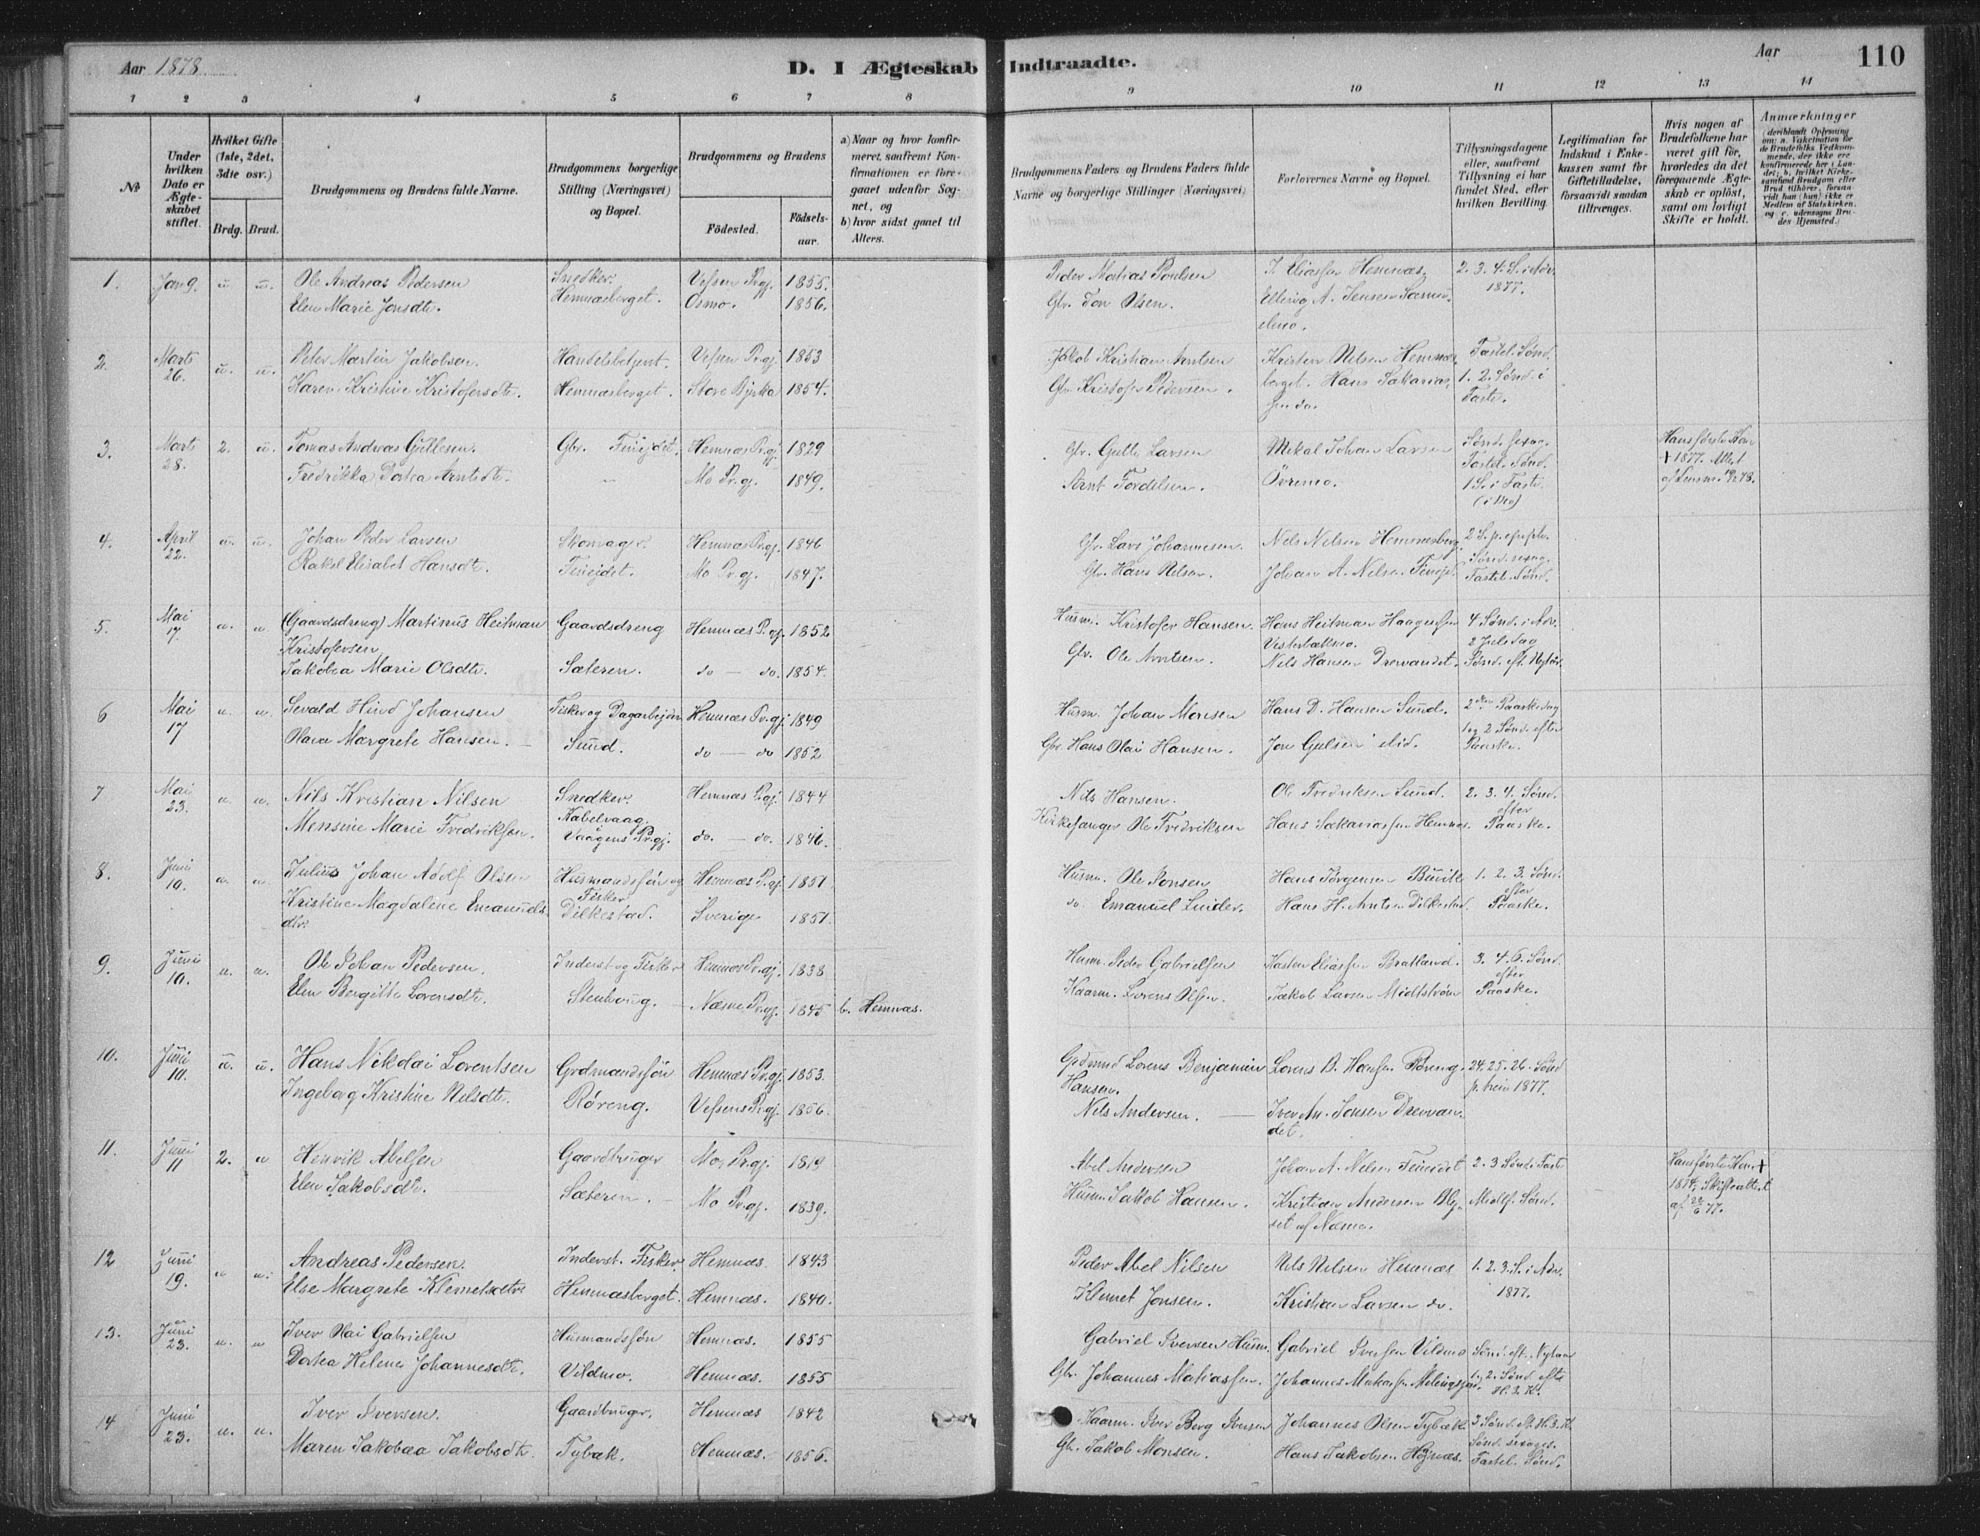 Aar 1878.
D. I Ægteskab Indtraadte.
Aar
110
1 2 3 4 5 6 7 8 9 10 11 12 13 14
No
Under hvilken Dato er Ægteskabet stiftet.
Hvilket Gifte (1ste, 2det, 3die osv.)
Brdg. Brud.
Brudgommens og Brudens fulde Navne.
Brudgommens borgerlige Stilling (Næringsvei) og Bopæl.
Brudgommens og Brudens
Födested.
Födselsaar.
a) Naar og hvor konfirmeret, saafremt Konfirmationen er foregaaet udenfor Sognet, og
b) hvor sidst gaaet til Alters.
Brudgommens Faders og Brudens Faders fulde Navne og borgerlige Stillinger (Næringsvei)
Forlovernes Navne og Bopæl.
Tillysningsdagene eller, saafremt Tillysning ei har fundet Sted, efter hvilken Bevilling.
Legitimation for Indskud i Ænkekassen samt for Giftetilladelse, forsaavidt saadan tiltrænges.
Hvis nogen af Brudefolkene har været gift för, hvorledes da det foregaaende Ægteskab er oplöst, samt om lovligt Skifte er holdt.
Anmærkninger
1. Jan 9. u u. Ole Andreas Pedersen Snedker Vefsen Prgj. 1855. Peder Matias Poulsen J. Eliassen Hemnæs, 2. 3. 4. S. i Adv.
Elen Marie Jonsdtr. Hemnæsberget. Osmo. 1856. Gbr. Jon Olsen. Elling A. Jensen 1877.
2. Marts 26. u. u. Peter Martin Jakobsen. Handelsbetjent. Vefsen Prgj. 1853 Jakob Kristian Arntsen Kristen Nilsen Hemnæsberget. Fastel. Sönd.
Karen Kristine Kristofersdtr. Hemnæsberget. Store Bjerka 1854. Gbr. Kristofer Pedersen. Hans Sakariassen do. 1. 2. Sönd i Faste.
3. Marts 28. 2. u. Tomas Andreas Gullesen Gbr. Finejdet. Hemnæs Prgj. 1829 Gbr. Gulle Larsen Mikal Johan Larsen Sönd. sexag. Fastel. Sönd. Hans förste Kone + 1877. Attest
Fredrikka Dortea Arntsdtr. Mo Prgj. 1849. Arnt Tordelsen. Övremo. 1 S. i Faste. (i Mo)
4. April 22. u. u. Johan Peder Larsen Skomager. Hemnæs Prgj. 1846 Gbr. Lars Johannesen. Nils Nilsen Hemnæsberg.
Rakel Elisabet Hansdtr. Finejdet. Mo Prgj. 1847. Gbr. Hans Nilsen. Johan A. Nilsen Finejd. Sönd. sexag. Fastel. Sönd.
5. Mai 17. u. u. (Gaardsdreng) Martinus Heitman Kristofersen Gaardsdreng Hemnæs Prgj. 1852 Husm. Kristofer Hansen. Hans Heitman Haagensen 4 Sönd. i Adv. 2 Juledag
Jakobea Marie Olsdtr. Sæteren. do — do. 1854. Gbr. Ole Arntsen. Nils Hansen Drevandet. Sönd. eft. Nytår.
6 Mai 17 u. u. Sevald Hind Johansen Fisker og Dagarbejder Hemnæs Prgj. 1849 Husm. Johan Monsen Hans D. Hansen Sund. 2den Paaskedag
Olava Margrete Hansen. Sund. do — do 1852 Gbr. Hans Olai Hansen. Jon Gulsen ibid. 1 og 2 Sönd. efter Paaske.
7 Mai 23. u. u. Nils Kristian Nilsen Snedker. Hemnæs Prgj. 1844 Nils Hansen. Ole Fredriksen Sund. 2. 3. 4. Sönd. efter Paaske.
Mensine Marie Fredriksen. Kabelvaag. Vaagens Prgj. do. — do. 1846. Kirkesanger Ole Fredriksen Hans Sakariassen Hemnæs
8. Juni 10. u. u. Julius Johan Adolf Olsen Husmandssön og Fisker Hemnæs Prgj. 1851. Husm. Ole Jonsen Hans Jörgensen Buvik 1. 2. 3. Sönd. efter Paaske.
Kristine Magdalene Emanuelsdtr. Dilkestad. Sverige 1851. do. Emanuel Linder. Hans H. Arntsen Dilkestad.
9. Juni 10. u. u. Ole Johan Pedersen. Inderst og Fisker Hemnæs Prgj. 1838 Husm. Peder Gabrielsen Kasten Eliassen Bratland. 3. 4. 6. Sönd. efter Paaske.
Elen Bergitte Lorensdtr. Stenhaug. Næsne Prgj. 1845 b. Hemnæs. Kaarm. Lorens Olsen. Jakob Larsen Midtström
10. Juni 10. u. u. Hans Nikolai Lorentsen Grdmandssön Hemnæs Prgj. 1853. Grdmnd Lorens Benjamin Hansen. Lorens B. Hansen Röreng. 24. 25. 26. Sönd p. trin 1877.
Ingeborg Kristine Nilsdtr. Röreng. Vefsens Prgj. 1856. Nils Andersen. Iver An. Jonsen Drevvandet.
11. Juni 11 2. u Henrik Abelsen Gaardbruger Mo Prgj. 1819 Abel Andersen Johan A. Nilsen Finejdet 2. 3 Sönd. Faste Hans förste Kone + 1874, Skifteattest af 22/6 77.
Elen Jakobsdtr. Sæteren. Mo Prgj. 1839. Husm. Jakob Hansen. Kristian Andersen af Næsne. Midf. Sönd.
12 Juni 19. u u. Andreas Pedersen. Inderst. Fisker. Hemnæs. 1843 Peder Abel Nilsen Nils Nilsen Hemnæs 1. 2. 3. S. i Adv. 1877.
Else Margrete Klemetsdtr. Hemnæsberget. Hemnæs. 1840. Klemet Jonsen. Kristian Larsen do.
13. Juni 23. u. u Iver Olai Gabrielsen Husmandssön Hemnæs. 1855 Gabriel Iversen Husm. Gabriel Iversen Vildmo Sönd. eft. Nytaar
Dortea Helene Johannesdtr. Vildmo. Hemnæs. 1855 Gbr. Johannes Matiassen. Johannes Matiassen 1. 2. Sönd. efter H. 3. K.
14 Juni 23. u. u. Iver Iversen. Gaardbruger. Hemnæs 1842 Kaarm. Iver Berg Iversen Johannes Olsen Tybæk 3 Sönd. H. 3. K.
Maren Jakobæa Jakobsdtr. Tybæk. Hemnæs. 1856. Gbr. Jakob Monsen. Hans Jakobsen Höjnæs. Sönd. sexages. Fastel. Sönd.